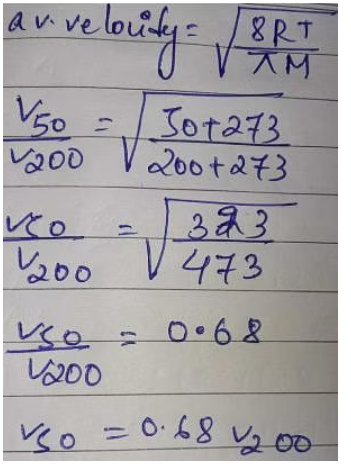 av. velocity = √(8RT/πM)
V50/V200 = √(50+273/200+273)
V50/V200 = √(323/473)
V50/V200 = 0.68
V50 = 0.68 V200